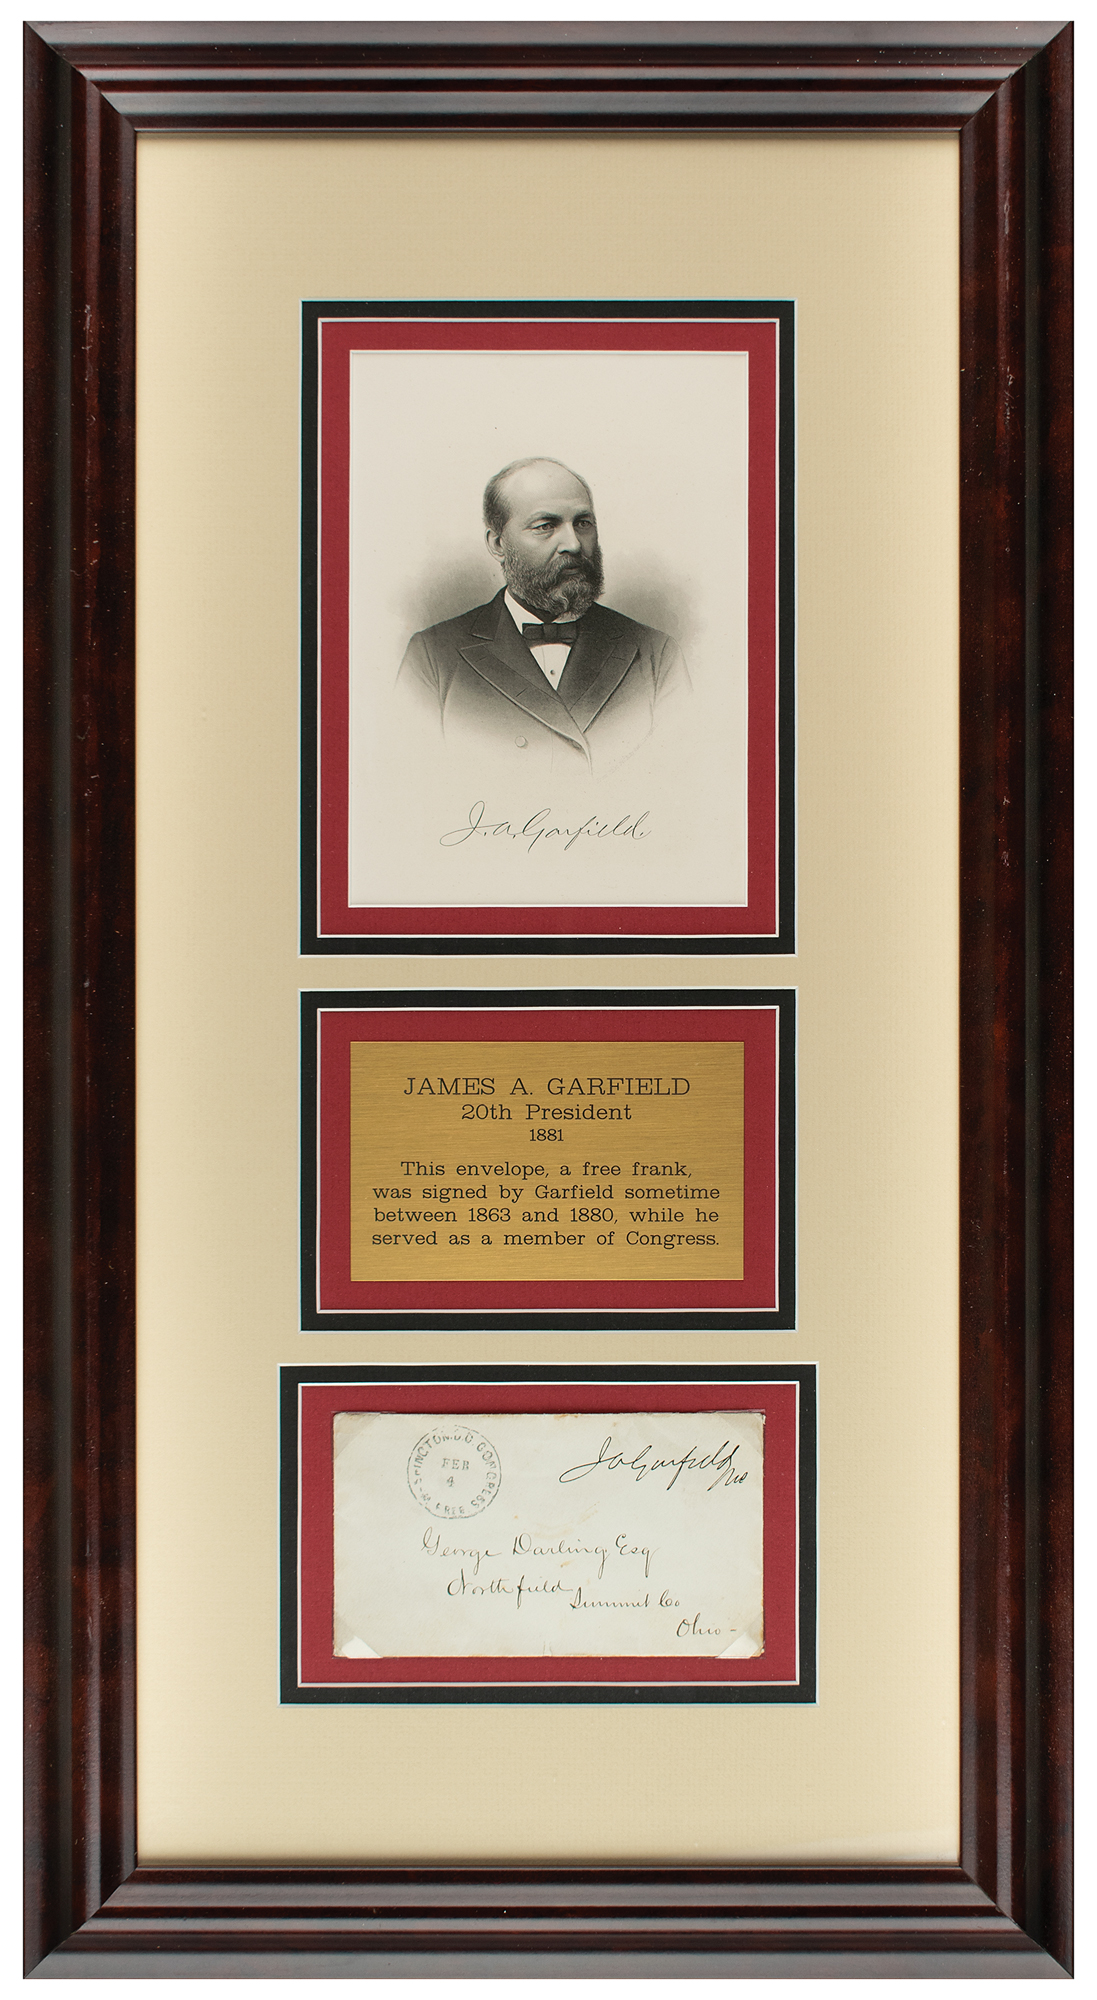 J. A. Garfield.
JAMES A. GARFIELD
20th President
1881
This envelope, a free frank,
was signed by Garfield sometime
between 1863 and 1880, while he
served as a member of Congress.
WASHINGTON.D.C. CONGRESS
FEB
4
FREE
J A Garfield
MC
George Darling Esq
Northfield
Summit Co
Ohio -